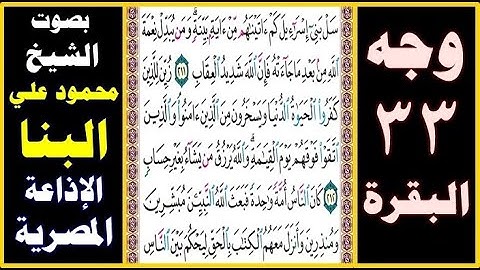 وجه
٣٣
البقرة
سَلْ بَنِىٓ إِسْرَٰٓءِيلَ كَمْ ءَاتَيْنَٰهُم مِّنْ ءَايَةٍۭ بَيِّنَةٍ ۗ وَمَن يُبَدِّلْ نِعْمَةَ
ٱللَّهِ مِنۢ بَعْدِ مَا جَآءَتْهُ فَإِنَّ ٱللَّهَ شَدِيدُ ٱلْعِقَابِ ٢١١ زُيِّنَ لِلَّذِينَ
كَفَرُوا۟ ٱلْحَيَوٰةُ ٱلدُّنْيَا وَيَسْخَرُونَ مِنَ ٱلَّذِينَ ءَامَنُوا۟ ۘ وَٱلَّذِينَ
ٱتَّقَوْا۟ فَوْقَهُمْ يَوْمَ ٱلْقِيَٰمَةِ ۗ وَٱللَّهُ يَرْزُقُ مَن يَشَآءُ بِغَيْرِ حِسَابٍ
٢١٢ كَانَ ٱلنَّاسُ أُمَّةً وَٰحِدَةً فَبَعَثَ ٱللَّهُ ٱلنَّبِيِّـۧنَ مُبَشِّرِينَ
وَمُنذِرِينَ وَأَنزَلَ مَعَهُمُ ٱلْكِتَٰبَ بِٱلْحَقِّ لِيَحْكُمَ بَيْنَ ٱلنَّاسِ
بصوت
الشيخ
محمود علي
البنا
الإذاعة
المصرية